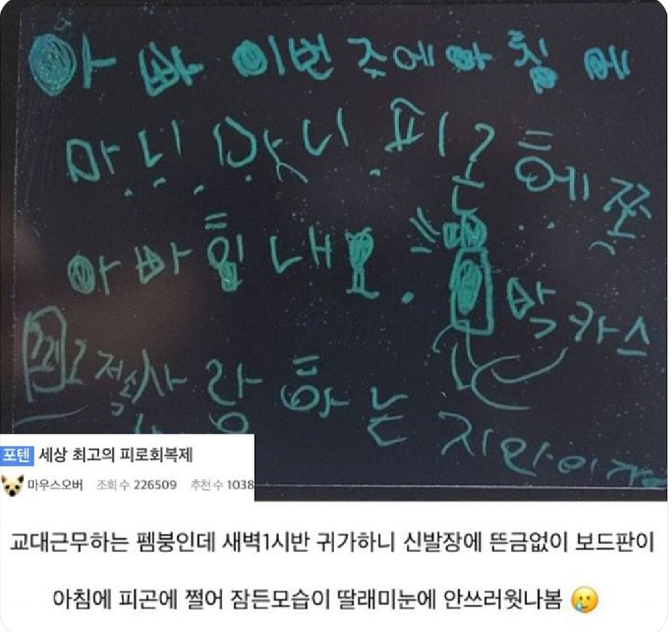 아빠 이번 주에 아침에
피곤해 쪼
아빠 힘내요. 박카스
사랑하는 지안이가
포텐 세상 최고의 피로회복제
마우스오버 조회 수 226509 추천 수 1038
교대근무하는 펨붕인데 새벽1시반 귀가하니 신발장에 뜬금없이 보드판이
아침에 피곤에 쩔어 잠든모습이 딸래미눈에 안쓰러웟나봄 🥲